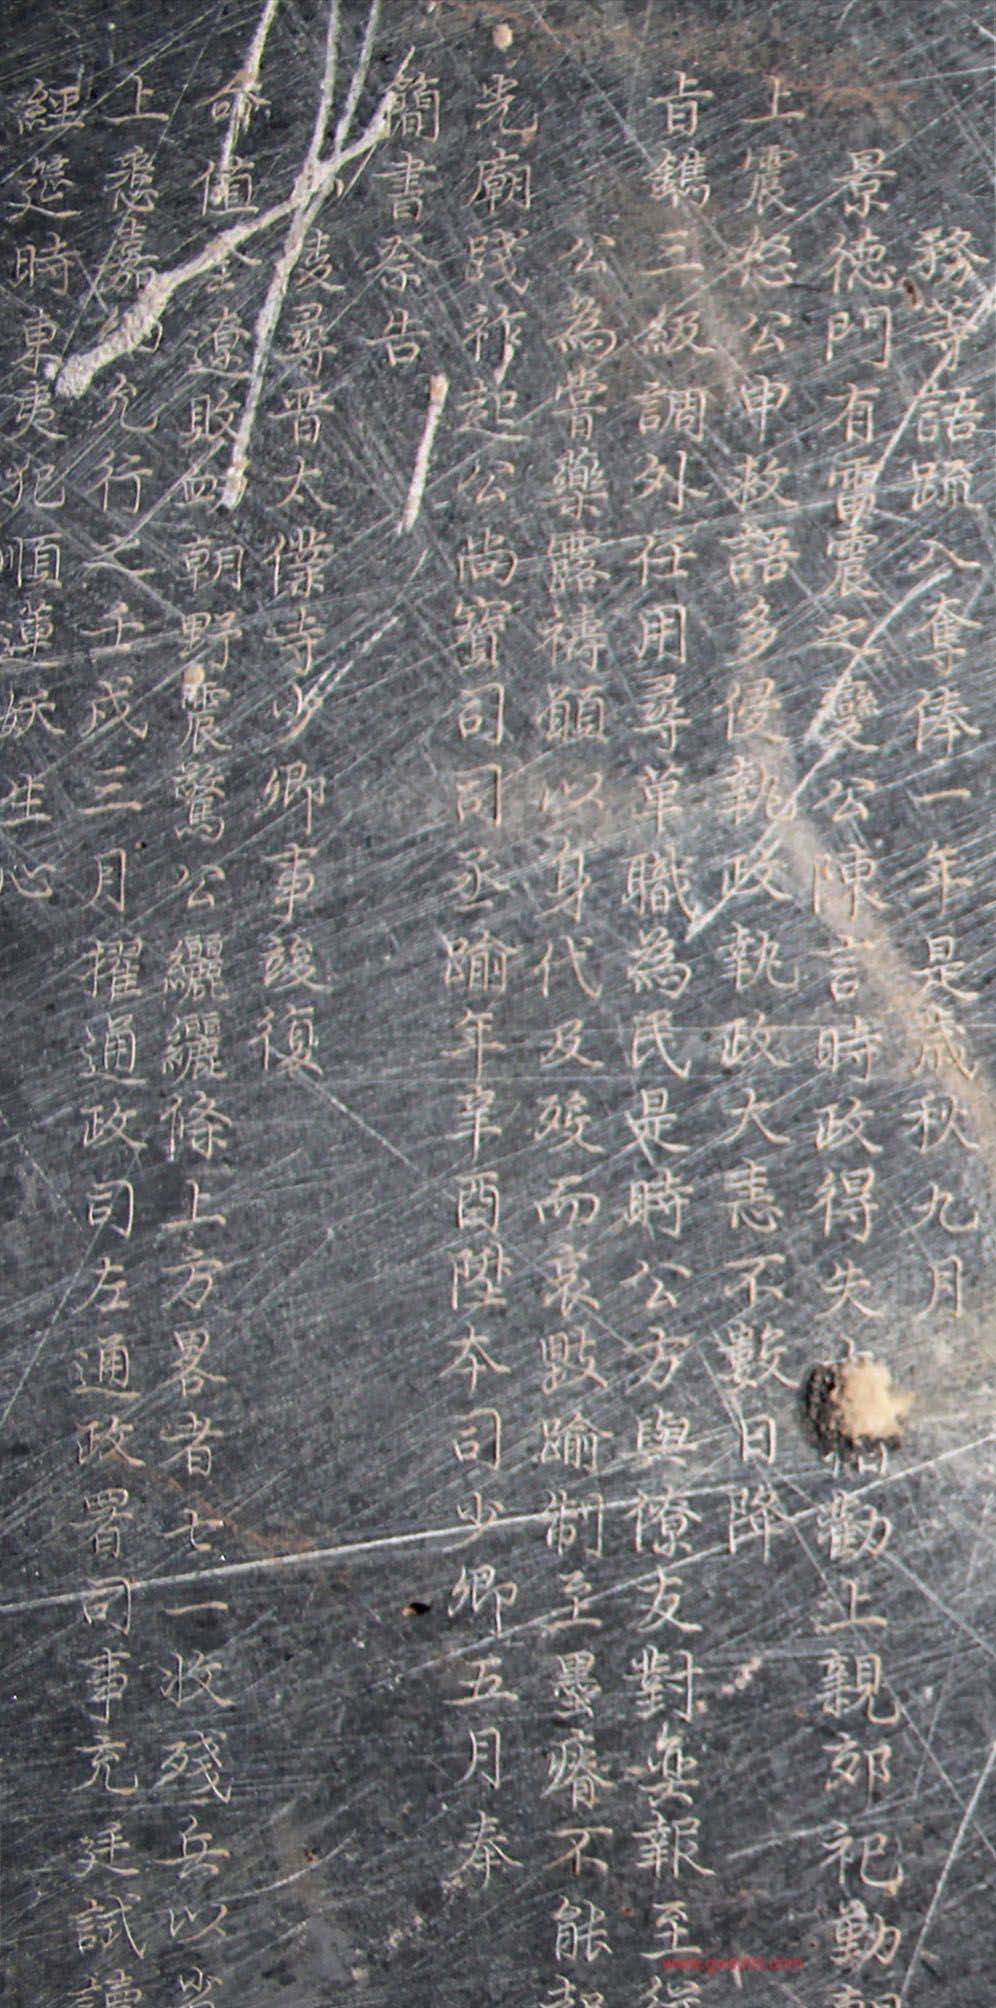 務等語疏入奪俸一年是歲秋九月
景德門有雷震之變公陳言時政得失勸上親郊祀勤朝
上震怒公申救語多侵執政執政大恚不數日降
旨鐫三級調外任用尋革職為民是時公方與僚友對奕報至
公為嘗藥露禱願以身代及歿而哀毀踰制至墨瘠不能起
光廟踐祚起公尚寶司司丞踰年辛酉陞本司少卿五月奉
簡書祭告
陵尋晉太僕寺少卿事竣復
命值全遼敗衂朝野震驚公纚纚條上方畧者七一收殘兵以
上意嘉允行之壬戌三月擢通政司左通政署司事充廷試讀
經筵時東夷犯順蓮妖生心
www.gw5000.com